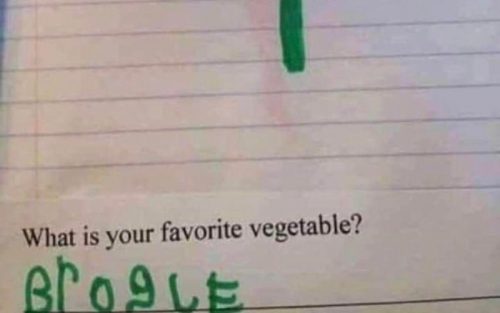 What is your favorite vegetable?
BrogLE